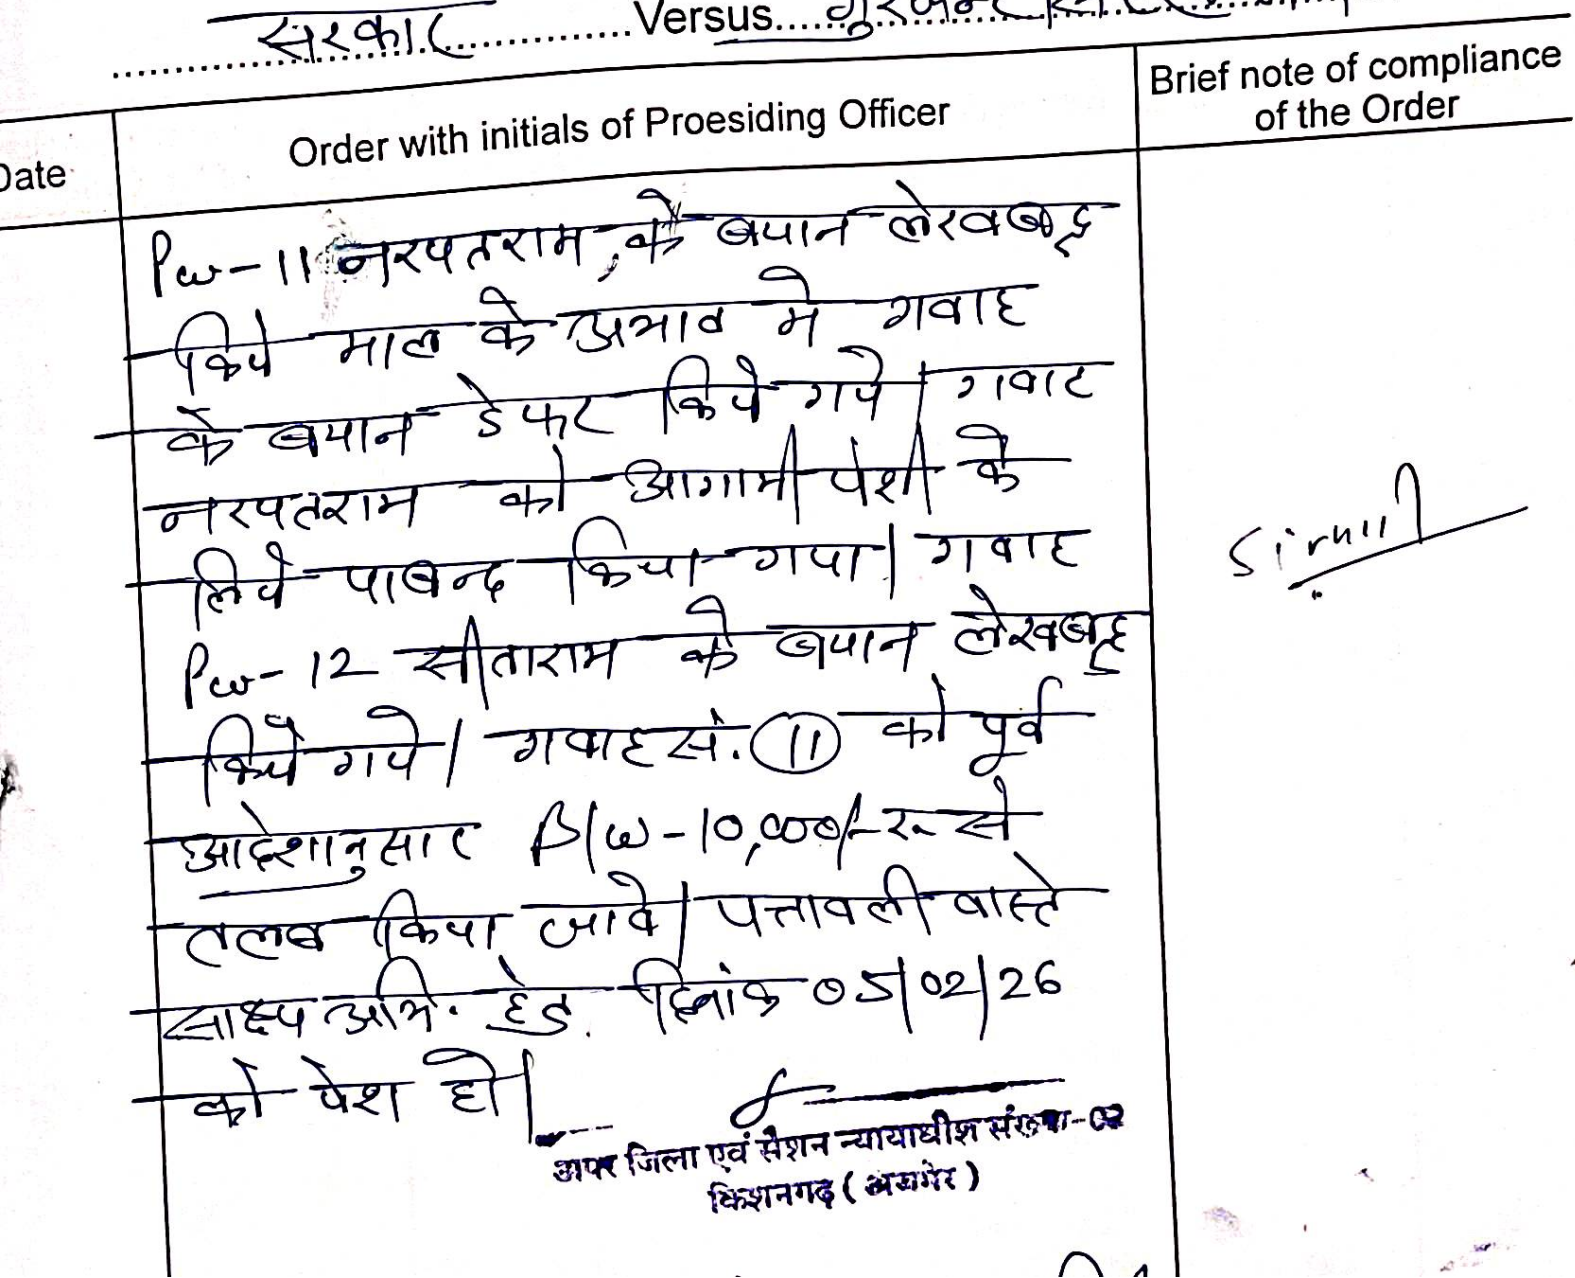 सरकार Versus
Date
Order with initials of Proesiding Officer
Brief note of compliance of the Order
Pw-11 नरपतराम, के बयान लेखबद्ध
किये माल के अभाव मे गवाह
के बयान डेफर किये गये। गवाह
नरपतराम को आगामी पेशी के
लिये पाबन्द किया गया। गवाह
Pw-12 सीताराम के बयान लेखबद्ध
किये गये। गवाह सं. 11 को पूर्व
आदेशानुसार B/w-10,000/-रू से
तलब किया जावे। पत्तावली वास्ते
साक्ष्य अभि. हेतु. दिनांक 05/02/26
को पेश हो।
अपर जिला एवं सेशन न्यायाधीश संख्या-02
किशनगढ़ (अजमेर)